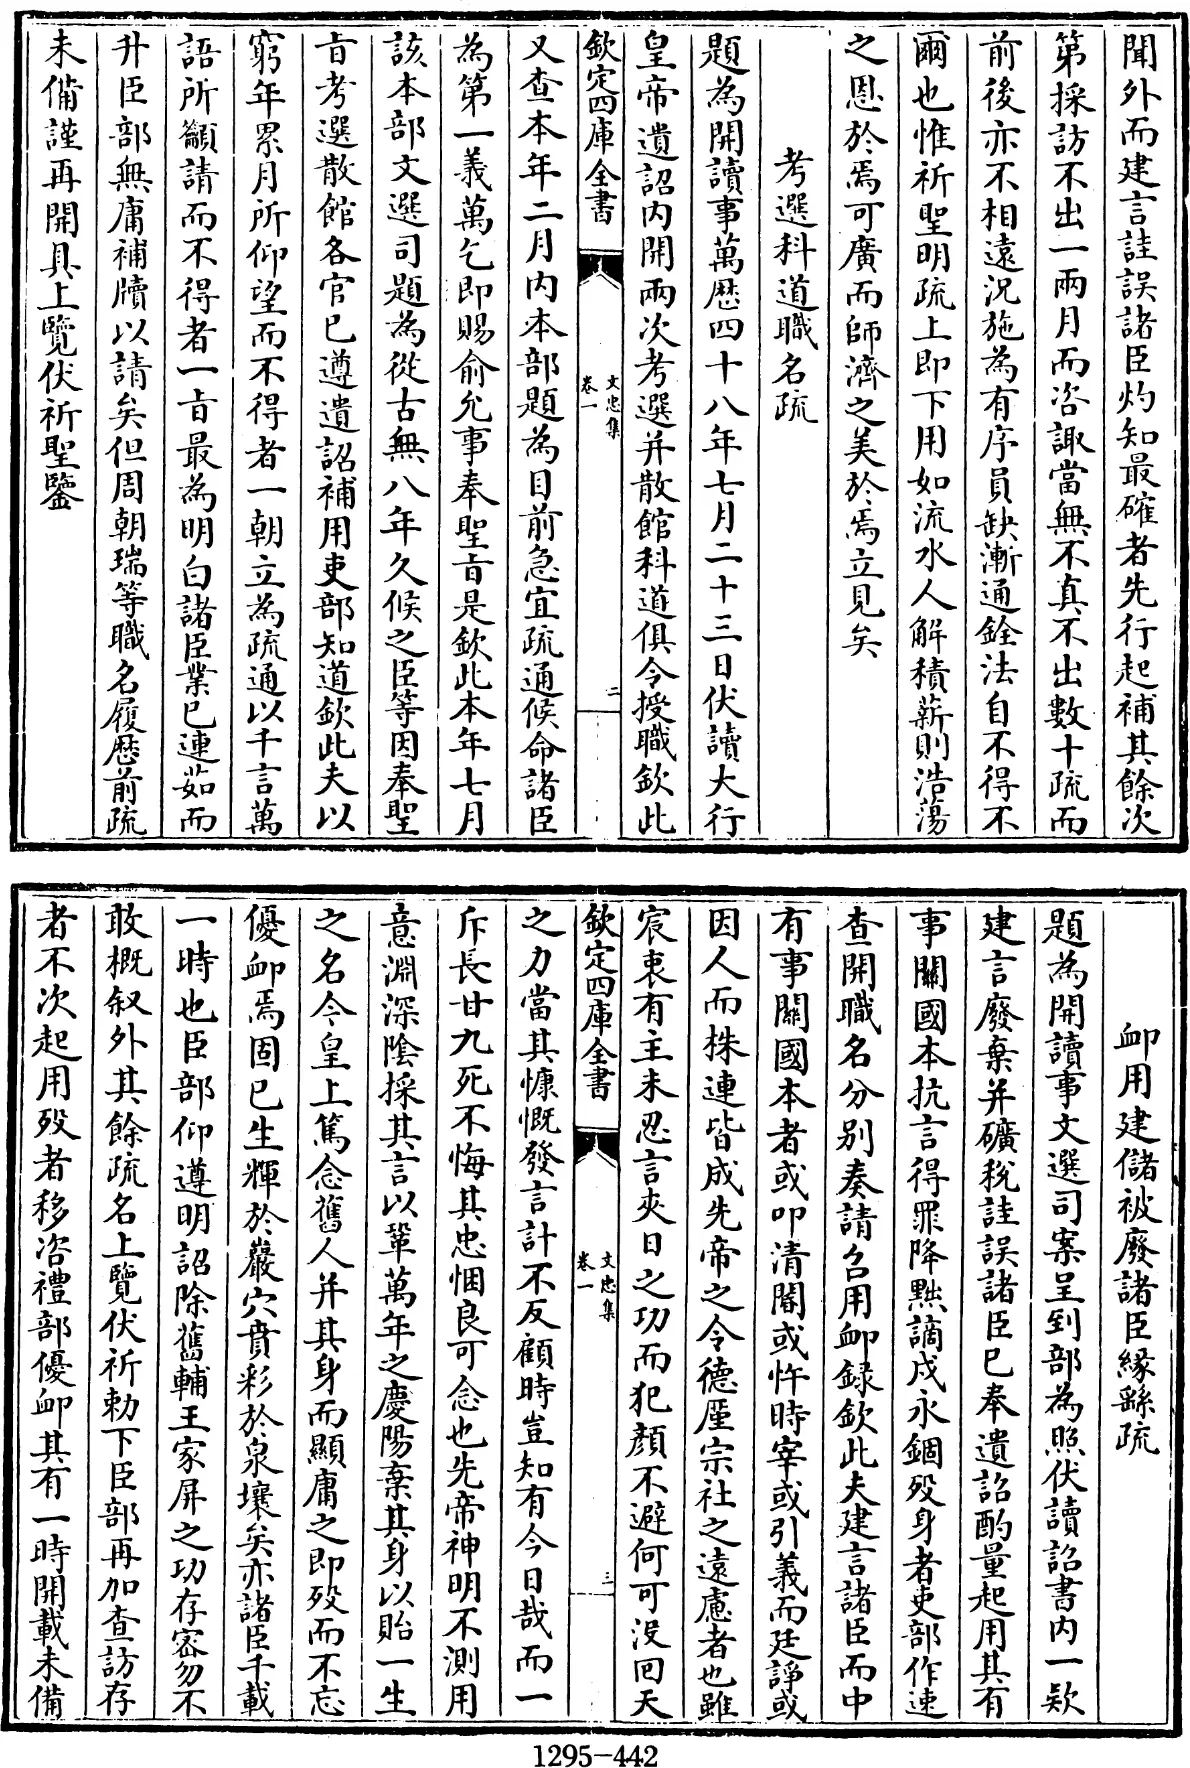 聞外而建言詿誤諸臣灼知最確者先行起補其餘次
第採訪不出一兩月而咨諏當無不真不出數十疏而
前後亦不相遠況施為有序員缺漸通銓法自不得不
爾也惟祈聖明疏上即下用如流水人解積薪則浩蕩
之恩於焉可廣而師濟之美於焉立見矣
考選科道職名疏
題為開讀事萬歴四十八年七月二十三日伏讀大行
皇帝遺詔内開兩次考選并散館科道俱令授職欽此
欽定四庫全書
文忠集
卷一
二
又查本年二月内本部題為目前急宜疏通候命諸臣
為第一義萬乞即賜俞允事奉聖㫖是欽此本年七月
該本部文選司題為從古無八年久候之臣等因奉聖
㫖考選散館各官已遵遺詔補用吏部知道欽此夫以
窮年累月所仰望而不得者一朝立為疏通以千言萬
語所籲請而不得者一㫖最為明白諸臣業已連茹而
升臣部無庸補牘以請矣但周朝瑞等職名履歴前疏
未備謹再開具上覽伏祈聖鑒
䘏用建儲被廢諸臣緣繇疏
題為開讀事文選司案呈到部為照伏讀詔書内一欵
建言廢棄并礦稅詿誤諸臣已奉遺詔酌量起用其有
事關國本抗言得罪降黜謫戍永錮殁身者吏部作速
查開職名分别奏請召用䘏録欽此夫建言諸臣而中
有事關國本者或叩清閽或忤時宰或引義而廷諍或
因人而株連皆成先帝之令德厪宗社之遠慮者也雖
宸衷有主未忍言夾日之功而犯顔不避何可沒回天
欽定四庫全書
文忠集
卷一
三
之力當其慷慨發言計不反顧時豈知有今日哉而一
斥長甘九死不悔其忠悃良可念也先帝神明不測用
意淵深陰採其言以鞏萬年之慶陽棄其身以貽一生
之名今皇上篤念舊人并其身而顯庸之即殁而不忘
優䘏焉固已生輝於巖穴賁彩於泉壤矣亦諸臣千載
一時也臣部仰遵明詔除舊輔王家屏之功存密勿不
敢概叙外其餘疏名上覽伏祈勅下臣部再加查訪存
者不次起用殁者移咨禮部優䘏其有一時開載未備
1295-442